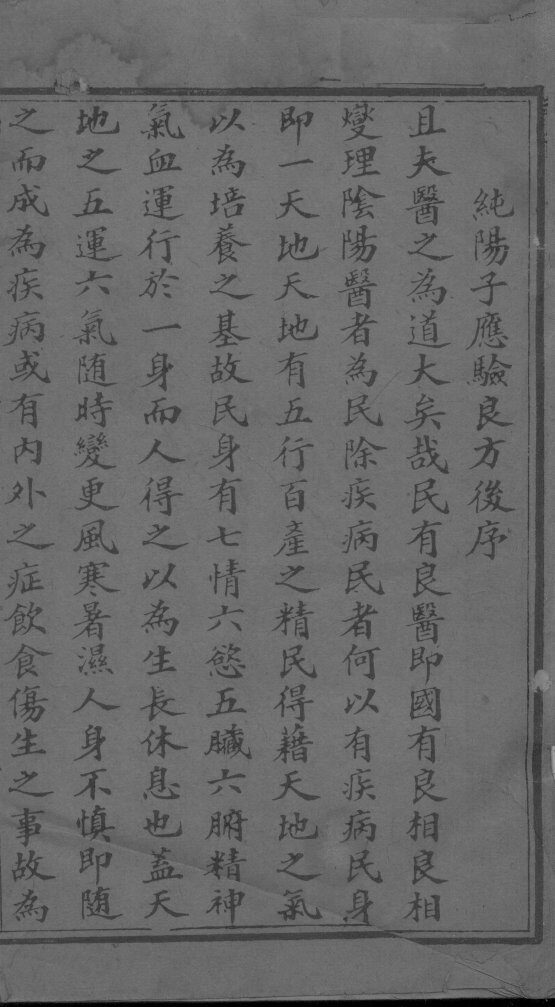 純陽子應驗良方後序
且夫醫之為道大矣哉民有良醫即國有良相良相
燮理陰陽醫者為民除疾病民者何以有疾病民身
即一天地天地有五行百產之精民得藉天地之氣
以為培養之基故民身有七情六慾五臟六腑精神
氣血運行於一身而人得之以為生長休息也蓋天
地之五運六氣随時變更風寒暑濕人身不慎即随
之而成為疾病或有内外之症飲食傷生之事故為